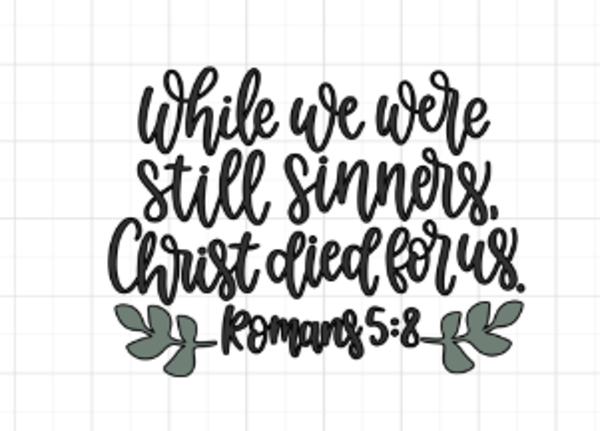 While we were
still sinners,
Christ died for us.
Romans 5:8